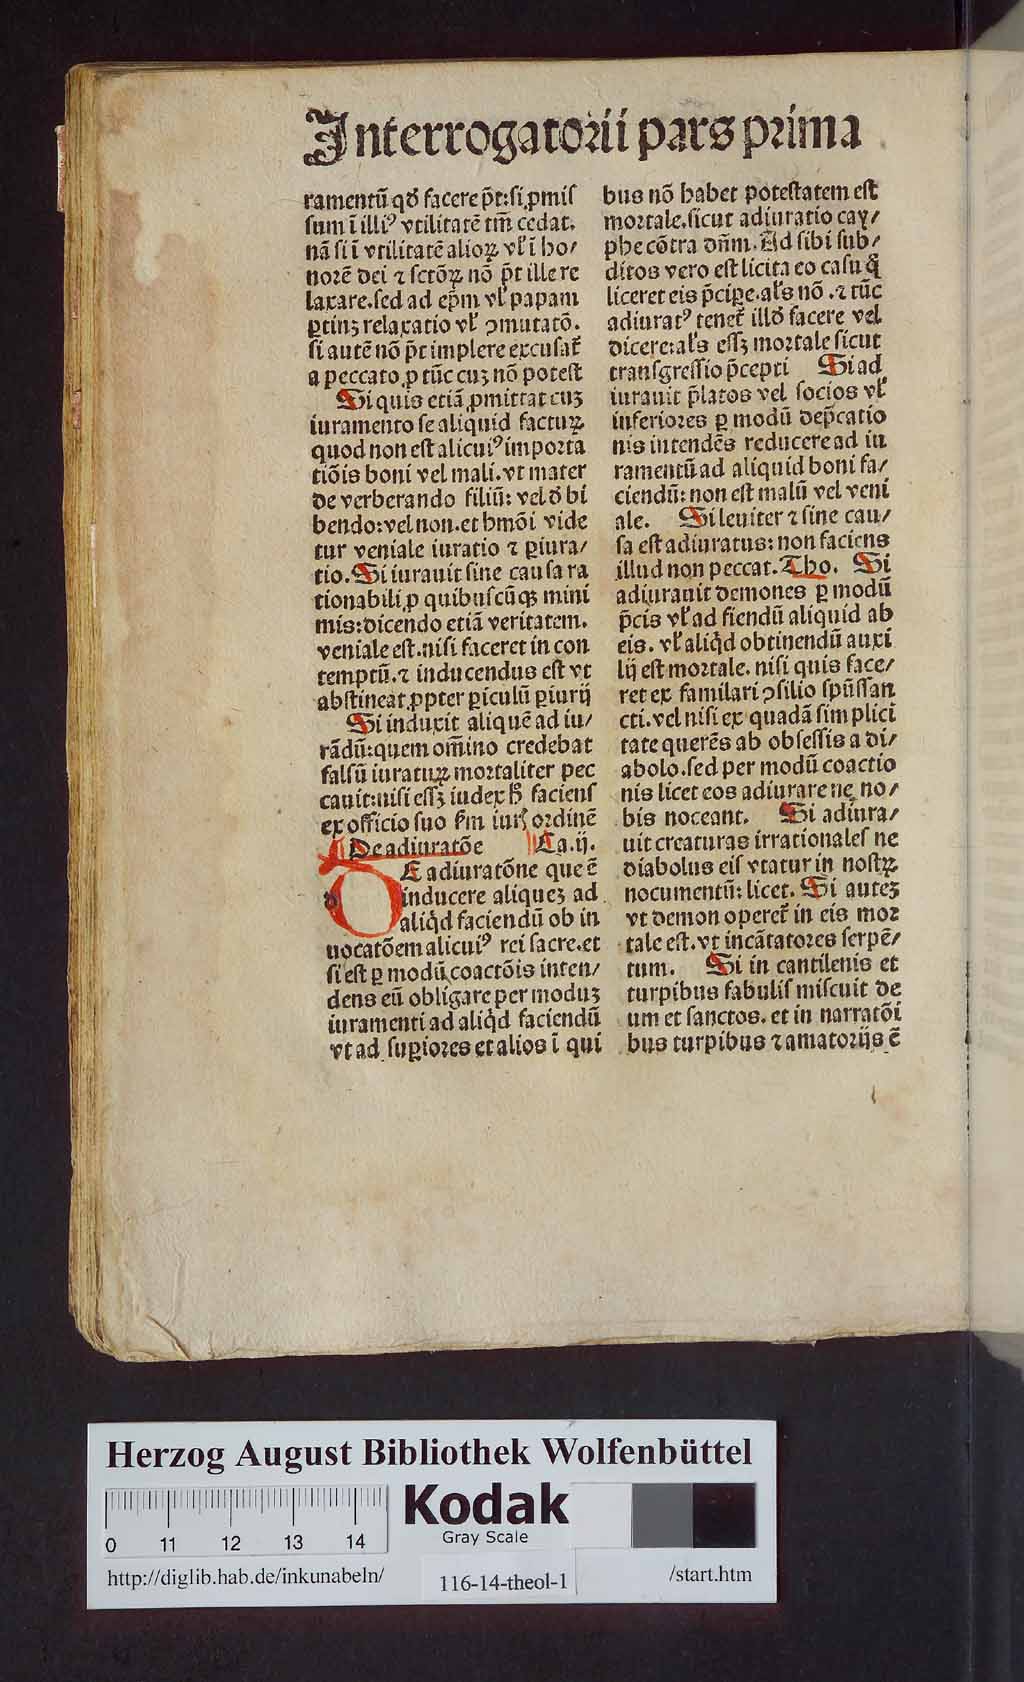 Interrogatorii pars prima
ramentū qd̛ facere p̄t: si ꝓmis
sum ī illiꝰ vtilitatē tm̄ cedat.
nā si ī vtilitatē alioꝝ vl̛ ī ho/
norē dei ⁊ sctōꝝ nō p̄t ille re
laxare. sed ad ep̄m vl̛ papam
ꝑtinꝫ relaxatio vl̛ ꝯmutatō.
si autē nō p̄t implere excusat̄
a peccato ꝓ tūc cuꝫ nō potest
Si quis etiā ꝓmittat cuꝫ
iuramento se aliquid factuꝝ
quod non est alicuiꝰ importa
tiōis boni vel mali. vt mater
de verberando filiū: vel d̛ bi
bendo: vel non. et hmōi vide
tur veniale iuratio ⁊ ꝑiura/
tio. Si iurauit sine causa ra
tionabili ꝓ quibuscūqꝫ mini
mis: dicendo etiā veritatem.
veniale est. nisi faceret in con
temptū. ⁊ inducendus est vt
abstineat ꝓpter ꝑiculū ꝑiurij
Si induxit aliquē ad iu/
rādū: quem om̄ino credebat
falsū iuratuꝝ mortaliter pec
cauit: nisi essꝫ iudex h̛ faciens
ex officio suo sm̄ iur̛ ordinē
¶ De adiuratōe ¶ Ca. ij.
DE adiuratōne que ē
inducere aliqueꝫ ad
aliqd̛ faciendū ob in
uocatōem alicuiꝰ rei sacre. et
si est ꝑ modū coactōis inten/
dens eū obligare per moduꝫ
iuramenti ad aliqd̛ faciendū
vt ad suꝑiores et alios ī qui
bus nō habet potestatem est
mortale. sicut adiuratio cay/
phe cōtra dn̄m. Ad sibi sub/
ditos vero est licita eo casu q̄
liceret eis p̄cipe. al̛s nō. ⁊ tūc
adiuratꝰ tenet̄ illd̛ facere vel
dicere: al̛s essꝫ mortale sicut
transgressio p̄cepti Si ad
iurauit p̄latos vel socios vl̛
inferiores ꝑ modū dep̄catio
nis intendēs reducere ad iu
ramentū ad aliquid boni fa/
ciendū: non est malū vel veni
ale. Si leuiter ⁊ sine cau/
sa est adiuratus: non faciens
illud non peccat. Tho. Si
adiurauit demones ꝑ modū
p̄cis vl̛ ad fiendū aliquid ab
eis. vl̛ aliqd̛ obtinendū auxi
lij est mortale. nisi quis face/
ret ex familari ꝯsilio spūssan
cti. vel nisi ex quadā simplici
tate querēs ab obsessis a di/
abolo. sed per modū coactio
nis licet eos adiurare ne no/
bis noceant. Si adiura/
uit creaturas irrationales ne
diabolus eis vtatur in nostꝝ
nocumentū: licet. Si auteꝫ
vt demon operet̄ in eis mor
tale est. vt incātatores serpē/
tum. Si in cantilenis et
turpibus fabulis miscuit de
um et sanctos. et in narratōi
bus turpibus ⁊ amatorijs ē
Herzog August Bibliothek Wolfenbüttel
0 11 12 13 14
Kodak
Gray Scale
http://diglib.hab.de/inkunabeln/
116-14-theol-1
/start.htm